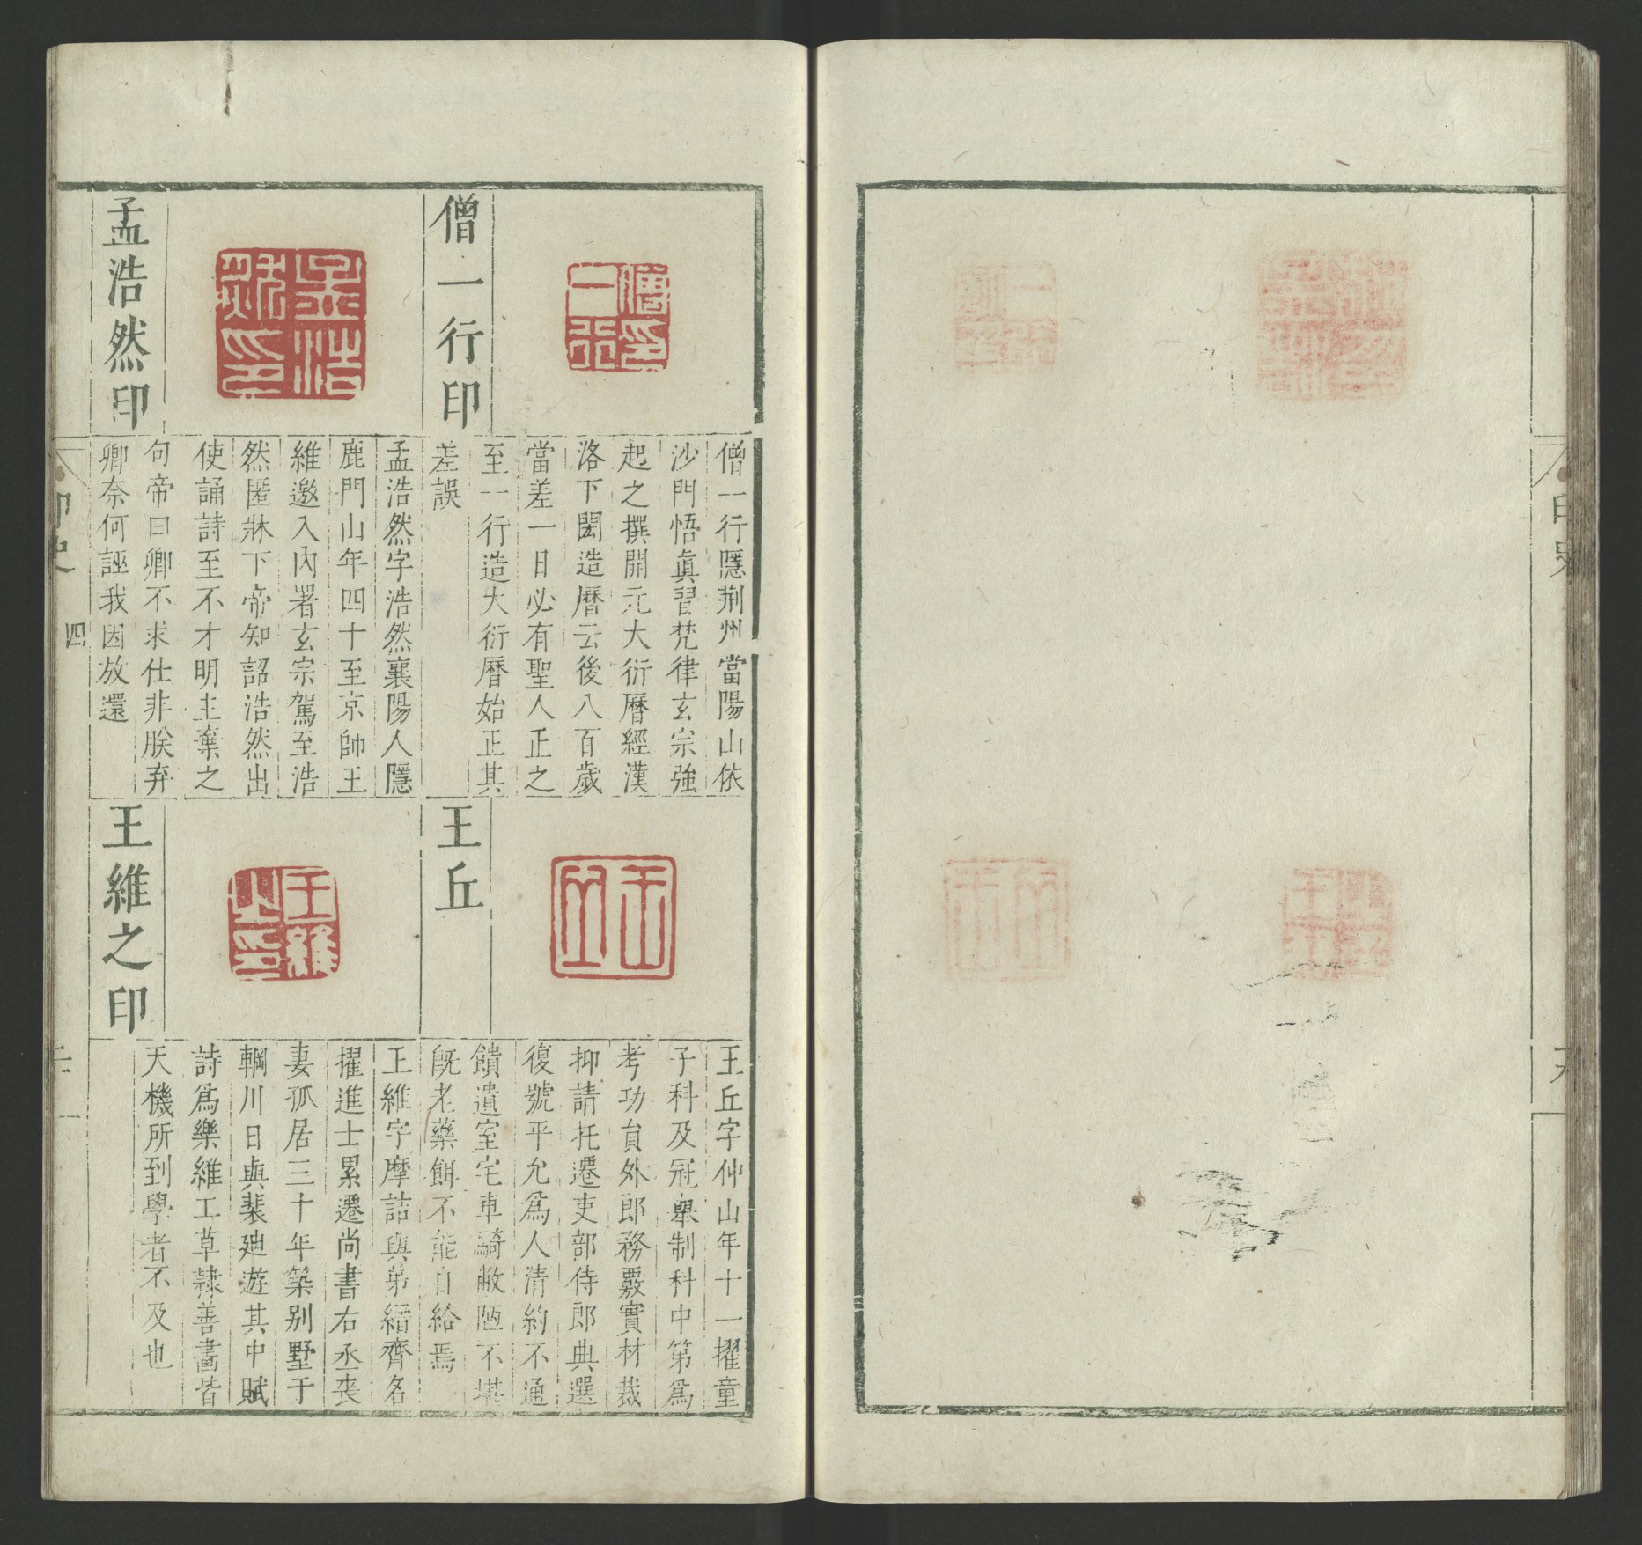 僧一行印
僧一行隱荆州當陽山依
沙門悟眞習梵律玄宗強
起之撰開元大衍曆經漢
洛下閎造曆云後八百歲
當差一日必有聖人正之
至一行造大衍曆始正其
差誤
孟浩然印
孟浩然字浩然襄陽人隱
鹿門山年四十至京師王
維邀入内署玄宗駕至浩
然匿牀下帝知詔浩然出
使誦詩至不才明主棄之
句帝曰卿不求仕非朕弃
卿奈何誣我因放還
王丘
王丘字仲山年十一擢童
子科及冠舉制科中第爲
考功貟外郎務覈實材裁
抑請托遷吏部侍郎典選
復號平允爲人清約不通
饋遺室宅車騎敝陋不堪
旣老藥餌不能自給焉
王維之印
王維字摩詰與弟縉齊名
擢進士累遷尚書右丞喪
妻孤居三十年築别墅于
輞川日與裴廸遊其中賦
詩爲樂維工草隷善畫皆
天機所到學者不及也
印史
四